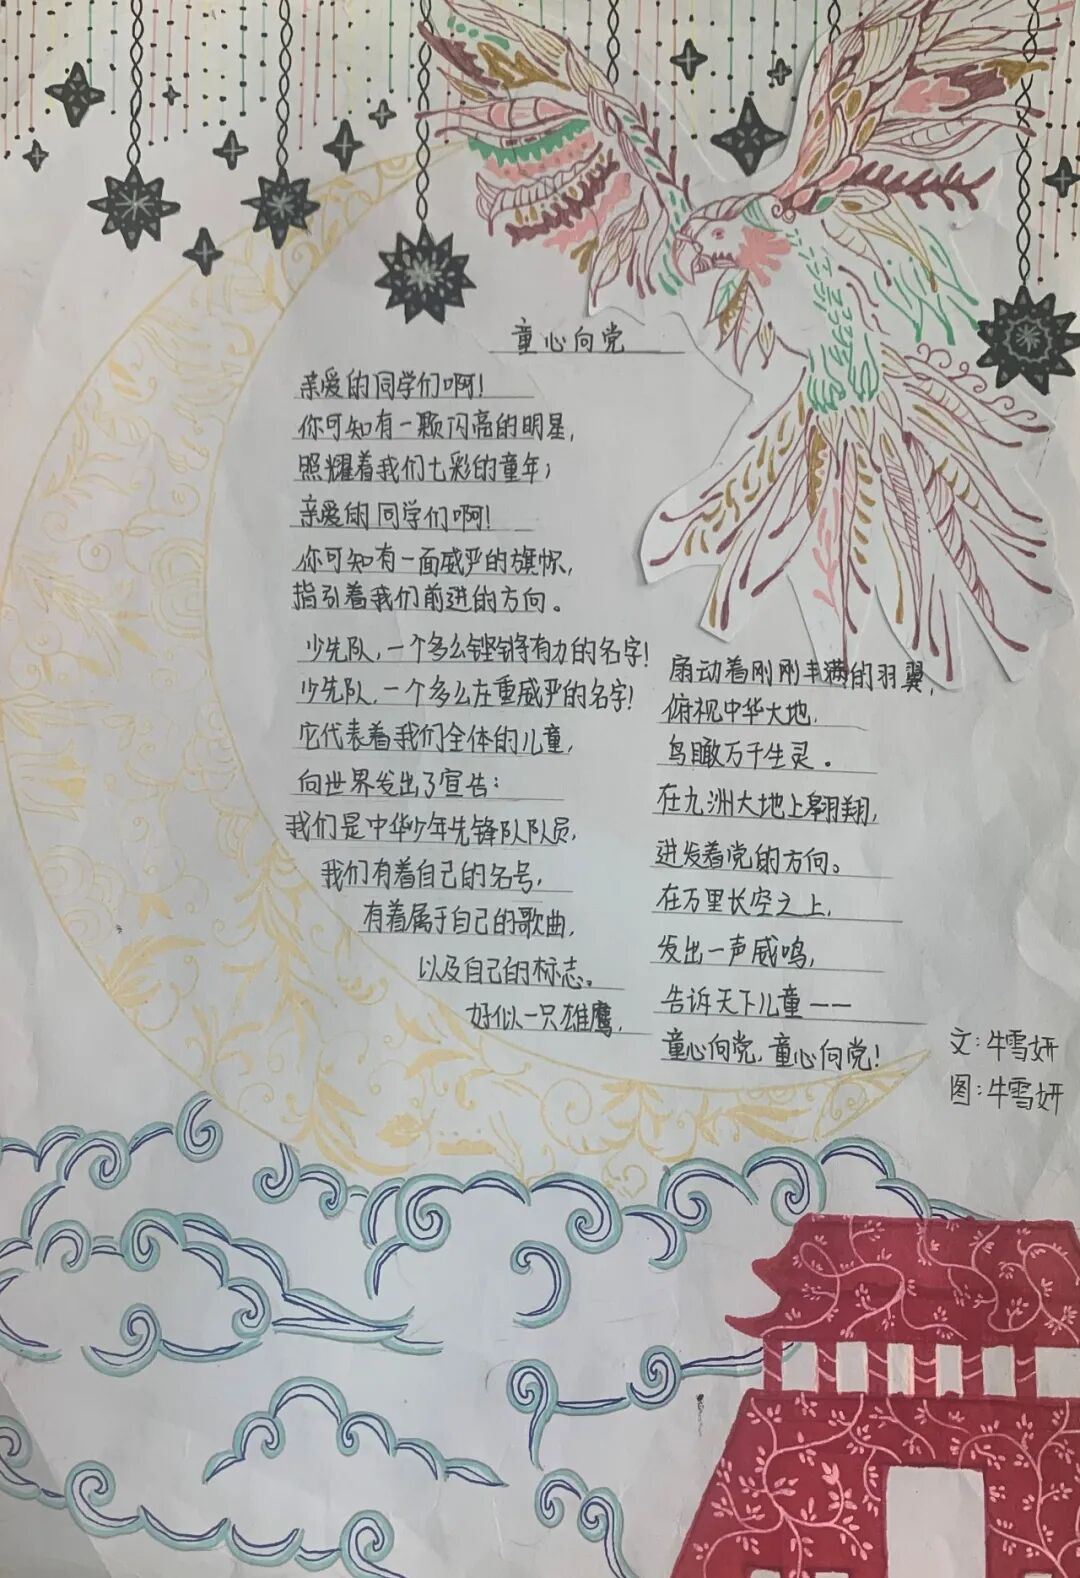 童心向党
亲爱的同学们啊!
你可知有一颗闪亮的明星,
照耀着我们七彩的童年;
亲爱的同学们啊!
你可知有一面威严的旗帜,
指引着我们前进的方向。
少先队,一个多么铿锵有力的名字!
少先队,一个多么庄重威严的名字!
它代表着我们全体的儿童,
向世界发出了宣告:
我们是中华少年先锋队队员,
我们有着自己的名号,
有着属于自己的歌曲,
以及自己的标志。
好似一只雄鹰,
扇动着刚刚丰满的羽翼,
俯视中华大地,
鸟瞰万千生灵。
在九洲大地上翱翔,
进发着党的方向。
在万里长空之上,
发出一声威鸣,
告诉天下儿童——
童心向党,童心向党!
文:牛雪妍
图:牛雪妍